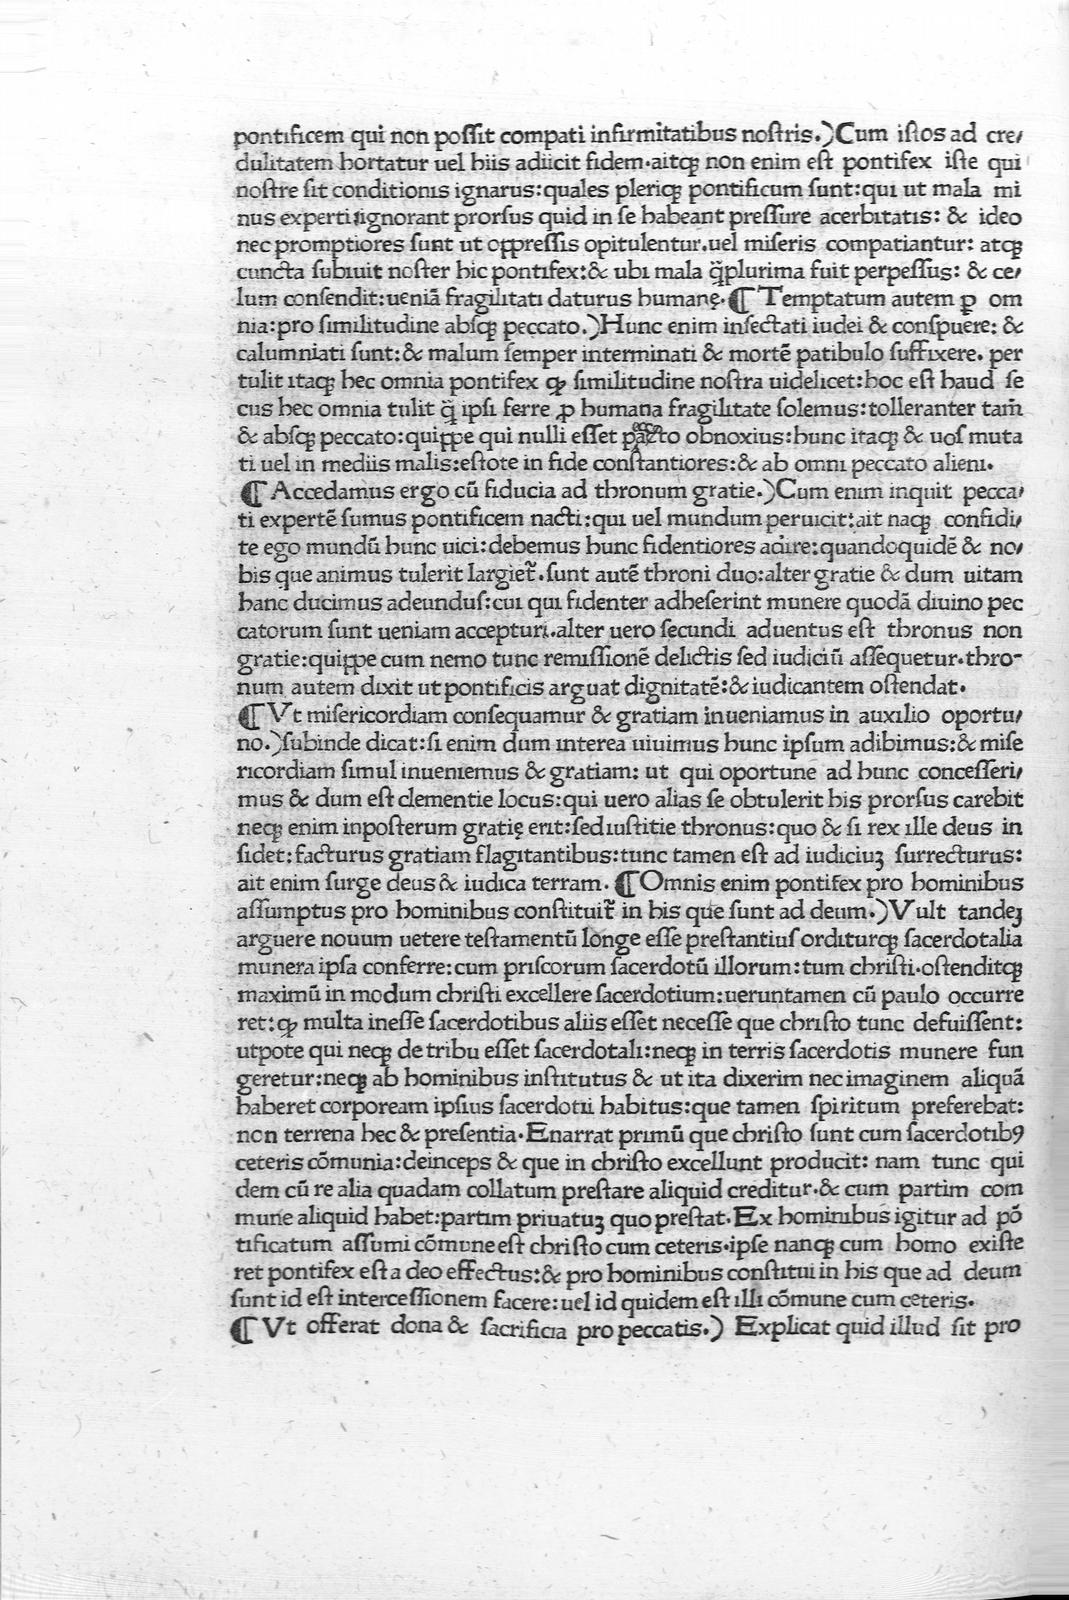 pontificem qui non poſſit compati infirmitatibus noſtris.)Cum iſtos ad cre/
dulitatem hortatur uel hiis adiicit fidem.aitqꝫ non enim eſt pontifex iſte qui
noſtre ſit conditionis ignarus:quales pleriqꝫ pontificum ſunt:qui ut mala mi
nus experti:ignorant prorſus quid in ſe habeant preſſure acerbitatis: & ideo
nec promptiores ſunt ut oppreſſis opitulentur.uel miſeris compatiantur: atqꝫ
cuncta ſubiuit noſter hic pontifex:& ubi mala q̃plurima fuit perpeſſus: & ce/
lum conſendit:ueniã fragilitati daturus humanę.¶ Temptatum autem ꝑ om
nia:pro ſimilitudine abſqꝫ peccato.)Hunc enim inſectati iudei & conſpuere: &
calumniati ſunt:& malum ſemper interminati & mortẽ patibulo ſuffixere. per
tulit itaqꝫ hec omnia pontifex ꝙ ſimilitudine noſtra uidelicet:hoc eſt haud ſe
cus hec omnia tulit q̃ ipſi ferre ꝓ humana fragilitate ſolemus:tolleranter tam̃
& abſqꝫ peccato:quippe qui nulli eſſet obnoxius:hunc itaqꝫ & uoſ muta
ti uel in mediis malis:eſtote in fide conſtantiores:& ab omni peccato alieni.
¶ Accedamus ergo cũ fiducia ad thronum gratie.)Cum enim inquit pecca/
ti expertẽ ſumus pontificem nacti:qui uel mundum peruicit:ait naqꝫ confidi/
te ego mundũ hunc uici:debemus hunc fidentiores adire:quandoquidẽ & no/
bis que animus tulerit largiet᷑.ſunt autẽ throni duo:alter gratie & dum uitam
hanc ducimus adeunduſ:cui qui fidenter adheſerint munere quodã diuino pec
catorum ſunt ueniam accepturi.alter uero ſecundi aduentus eſt thronus non
gratie:quippe cum nemo tunc remiſſionẽ delictis ſed iudiciũ aſſequetur.thro-
num autem dixit ut pontificis arguat dignitatẽ:& iudicantem oſtendat.
¶ Vt miſericordiam conſequamur & gratiam inueniamus in auxilio oportu/
no.)ſubinde dicat:ſi enim dum interea uiuimus hunc ipſum adibimus:& miſe
ricordiam ſimul inueniemus & gratiam: ut qui oportune ad hunc conceſſeri/
mus & dum eſt clementie locus:qui uero alias ſe obtulerit his prorſus carebit
neqꝫ enim inpoſterum gratię erit:ſed iuſtitie thronus:quo & ſi rex ille deus in
ſidet:facturus gratiam flagitantibus:tunc tamen eſt ad iudiciuꝫ ſurrecturus:
ait enim ſurge deus & iudica terram. ¶Omnis enim pontifex pro hominibus
aſſumptus pro hominibus conſtituit᷑ in his que ſunt ad deum.)Vult tandeꝫ
arguere nouum uetere teſtamentũ longe eſſe preſtantiuſ orditurqꝫ ſacerdotalia
munera ipſa conferre:cum priſcorum ſacerdotũ illorum:tum chriſti.oſtenditqꝫ
maximũ in modum chriſti excellere ſacerdotium:ueruntamen cũ paulo occurre
ret:ꝙ multa ineſſe ſacerdotibus aliis eſſet neceſſe que chriſto tunc defuiſſent:
utpote qui neqꝫ de tribu eſſet ſacerdotali:neqꝫ in terris ſacerdotis munere fun
geretur:neqꝫ ab hominibus inſtitutus & ut ita dixerim nec imaginem aliquã
haberet corpoream ipſius ſacerdotii habitus:que tamen ſpiritum preferebat:
non terrena hec & preſentia.Enarrat primũ que chriſto ſunt cum ſacerdotibꝯ
ceteris cõmunia:deinceps & que in chriſto excellunt producit: nam tunc qui
dem cũ re alia quadam collatum preſtare aliquid creditur.& cum partim com
mune aliquid habet:partim priuatuꝫ quo preſtat.Ex hominibus igitur ad põ
tificatum aſſumi cõmune eſt chriſto cum ceteris.ipſe nanqꝫ cum homo exiſte
ret pontifex eſt a deo effectus:& pro hominibus conſtitui in his que ad deum
ſunt id eſt interceſſionem facere:uel id quidem eſt illi cõmune cum ceteris.
¶ Vt offerat dona & ſacrificia pro peccatis.) Explicat quid illud ſit pro